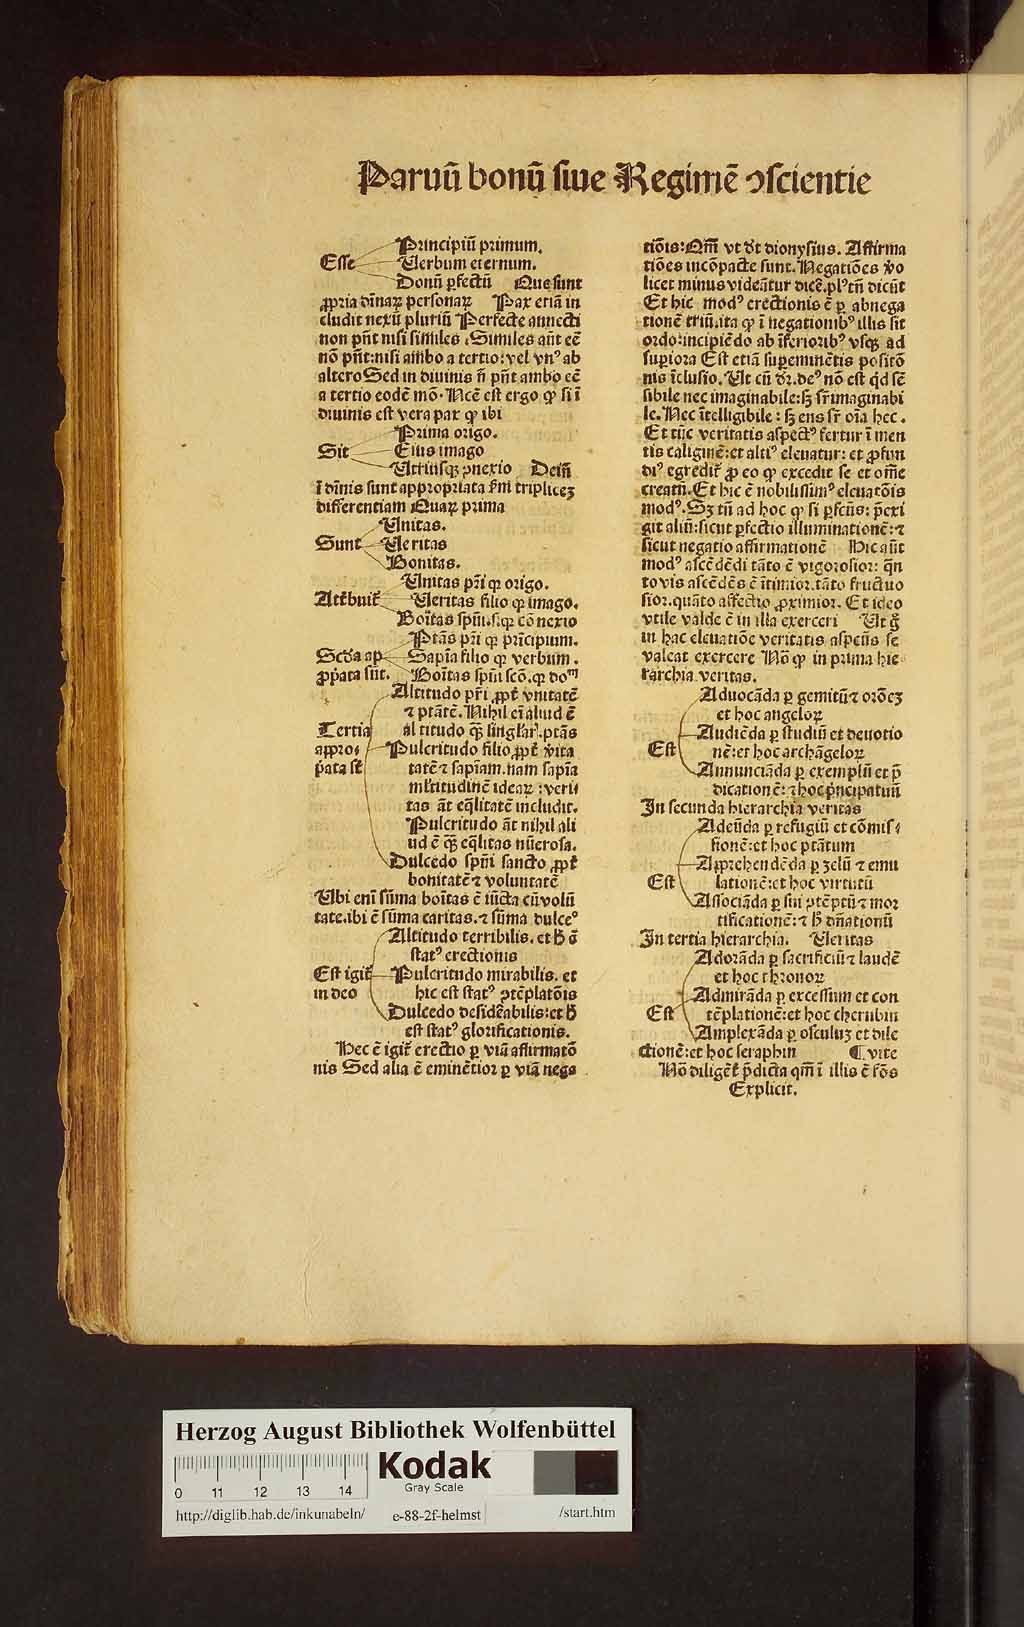 Paruū bonū siue Regimē ↄscientie
Principiū primum.
Esse Uerbum eternum.
Donū ꝑfectū Que sunt
ꝓpria diīnaꝝ personaꝝ Pax etiā in
cludit nexū pluriū Perfecte annecti
non pn̄t nisi similes. Similes aūt eē
nō pn̄t: nisi ambo a tertio: vel vnꝰ ab
altero Sed in diuinis n̄ pn̄t ambo eē
a tertio eodē mō. Ncē est ergo ꝙ si ī
diuinis est vera pax ꝙ ibi
Prima origo.
Sit Eius imago
Utriusqꝫ ↄnexio Deiñ
ī diīnis sunt appropriata ẜm tripliceꝫ
differentiam Quaꝝ prima
Unitas.
Sunt Ueritas
Bonitas.
Unitas pr̄i qꝛ origo.
Attribuit̃ Ueritas filio qꝛ imago.
Boītas spūi. s. qꝛ cōnexio
Ptās pr̄i qꝛ prīcipium.
Scḋa ap Sapīa filio qꝛ verbum.
ꝓpata sūt. Boītas spūi scō. qꝛ doᵐ
Altitudo pr̄i ꝓpt̃ vnitatē
⁊ ptātē. Nihil eī aliud ē
Tertia altitudo qꝫ singlar̄. ptās
appro⸗ Pulcritudo filio ꝓpt̃ v̓ita
pata sẗ tatē ⁊ sapīam. nam sapīa
mĺtitudinē ideaꝝ: veri
tas āt eq̄litatē includit.
Pulcritudo āt nihil ali
ud ē qꝫ eq̄litas nūerosa.
Dulcedo spūi sancto ꝓpt̃
bonitatē ⁊ voluntatē
Ubi enī sūma boītas ē iūcta cū volū
tate. ibi ē sūma caritas. ⁊ sūma dulceᵒ
Altitudo terribilis. et h̄ ē
statꝰ erectionis
Est igit̃ Pulcritudo mirabilis. et
in deo hic est statꝰ ↄtēplatōis
Dulcedo desidērabilis: et h̄
est statꝰ glorificationis.
Hec ē igit̃ erectio ꝑ viā affirmatō
nis Sed alia ē eminētior ꝑ viā nega
tiōis: Qm̄ vt dr̄t dionysius. Affirma
tiōes incōpacte sunt. Negatiōes v̓o
licet minus videātur dicē. plꝰ tn̄ dicūt
Et hic modꝰ erectionis ē ꝑ abnega
tionē triū. ita ꝙ ī negationibꝰ illis sit
ordo: incipiēdo ab īferioribꝰ vsqꝫ ad
superiora Est etiā supeminētis positō
nis īclusio. Ut cū dr̄. deꝰ nō est qd̓ sē
sibile nec imaginabile: sꝫ sr̄ imaginabi
le. Nec ītelligibile: sꝫ ens sr̄ oīa hec.
Et tūc veritatis aspectꝰ fertur ī men
tis caliginē: et altiꝰ eleuatur: et ꝓfun
diꝰ egredit̃ ꝓ eo ꝙ excedit se et om̄e
creatū. Et hic ē nobilissimꝰ eleuatōis
modꝰ. Sꝫ tn̄ ad hoc ꝙ si ꝑfectꝰ: p̄exi
git aliū: sicut ꝑfectio illuminationē: ⁊
sicut negatio affirmationē Hic aūt
modꝰ ascēdēdi tāto ē vigorosior: qn̄
to vis ascēdēs ē ītimior. tāto fructuo
sior. quāto affectio ꝓximior. Et ideo
vtile valde ē in illa exerceri Ut g̊
in hac eleuatiōe veritatis aspectꝰ se
valeat exercere Nō ꝙ in prima hie
rarchia veritas.
Aduocāda ꝑ gemitū ⁊ orōeꝫ
et hoc angeloꝝ
Audiēda ꝑ studiū et deuotio
Est nē: et hoc archāgeloꝝ
Annunciāda ꝑ exemplū et p̄
dicationē: ⁊ hoc pncipatuū
In secunda hierarchia veritas
Adeūda ꝑ refugiū et cōmis⸗
sionē: et hoc ptātum
Apprehendēda ꝑ zelū ⁊ emu
Est lationē: et hoc virtutū
Associāda ꝑ sui ↄtēptū ⁊ mor
tificationē: ⁊ h̄ dn̄ationū
In tertia hierarchia. Ueritas
Adorāda ꝑ sacrificiū ⁊ laudē
et hoc thronoꝝ
Admirāda ꝑ excessum et con
Est tēplationē: et hoc cherubin
Amplexāda ꝑ osculuꝫ et dile
ctionē: et hoc seraphin ¶ vite
Nō diligēt̃ p̄dicta qm̄ ī illis ē fōs
Explicit.
Herzog August Bibliothek Wolfenbüttel
Kodak
Gray Scale
0 11 12 13 14
http://diglib.hab.de/inkunabeln/ e-88-2f-helmst /start.htm